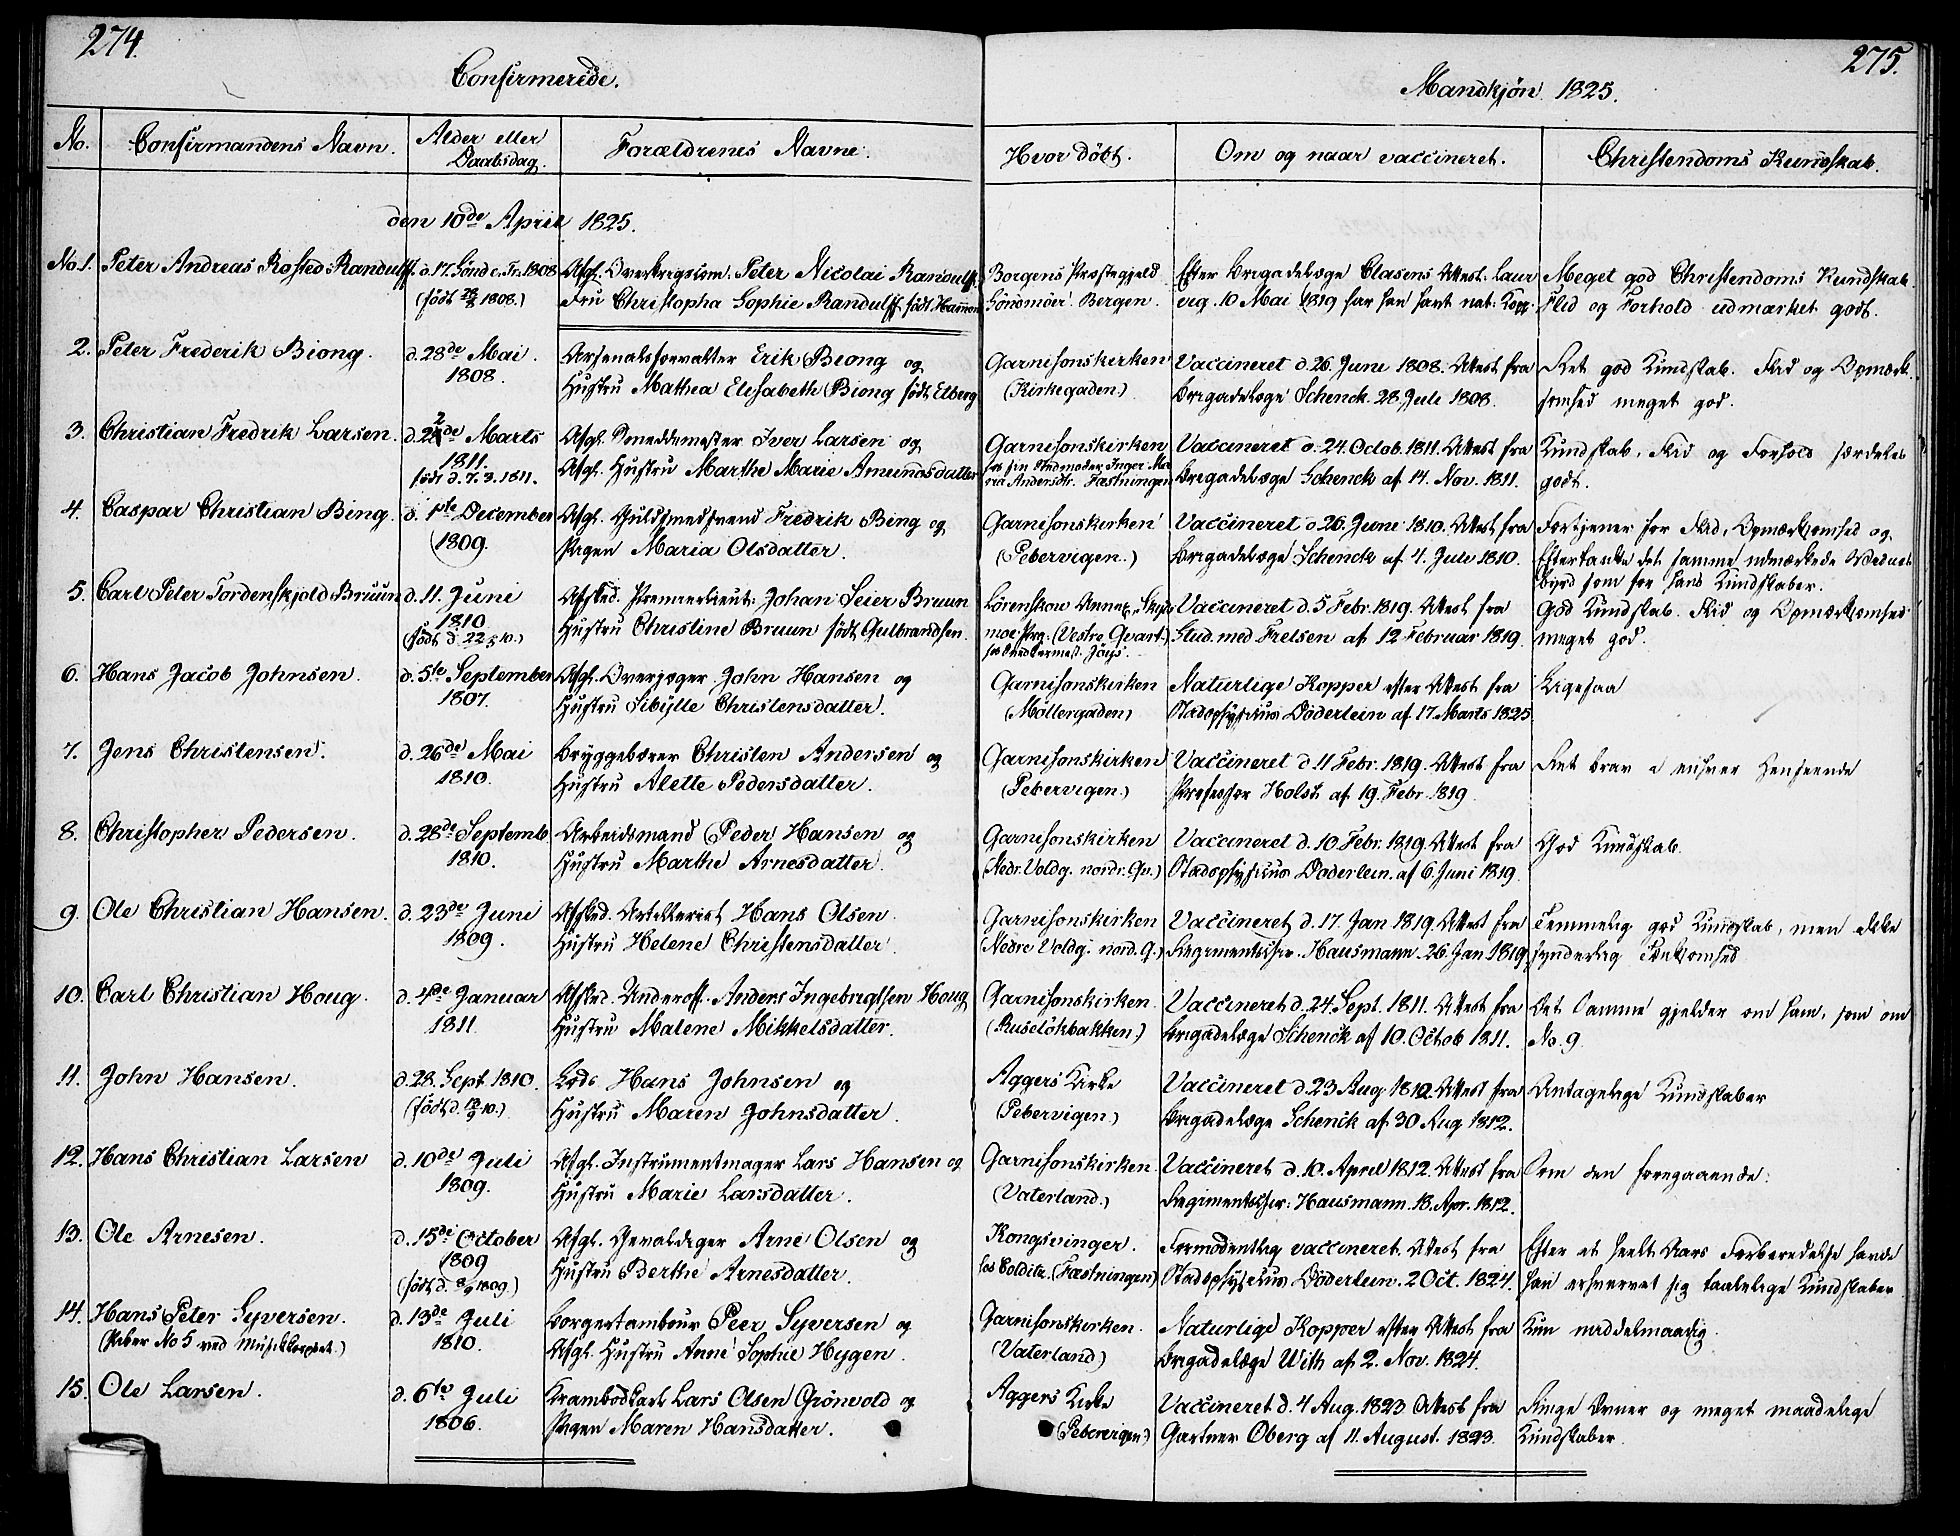 274.
Confirmerede.
No.
Confirmandens Navn.
Alder eller
Daabsdag.
Forældrenes Navne.
den 10de April 1825.
No.1. Peter Andreas Rosted Randulff. d. 17. Sönd. e. Tr. 1808 Afgl. Overkrigscom. Peter Nicolai Randulff.
(födt 28/8 1808.) Fru Christopha Sophie Randulff födt
2. Peter Frederik Biong. d. 28de Mai. Arsenalsforvalter Erik Biong og
1808. Hustru Mathea Elisabeth Biong födt Elberg
3. Christian Fredrik Larsen. d. 22de Marts Afgl. Smeddemester Iver Larsen og
1811. Afgl. Hustru Marthe Marie Amundsdatter
födt d. 7. 3. 1811.
4. Caspar Christian Bing. d. 1ste December Afgl. Guldsmedsvend Fredrik Bing og
1809. Pigen Maria Olsdatter.
5. Carl Peter Tordenskjold Bruun d. 11. Juni Afsked. Premierlieut: Johan Seier Bruun
1810 Hustru Christine Bruun födt Gulbrandsen.
(födt d. 22/5 10.)
6. Hans Jacob Johnsen. d. 5te September Afgl. Overjæger John Hansen og
1807. Hustru Sibylle Christensdatter.
7. Jens Christensen. d. 26de Mai Bryggebærer Christen Andersen og
1810. Hustru Alette Pedersdatter.
8. Christopher Pedersen. d. 28de Septemb. Arbeidsmand Peder Hansen og
1810. Hustru Marthe Arnesdatter.
9. Ole Christian Hansen. d. 23de Juni Afsked. Artillerist Hans Olsen.
1809. Hustru Helene Christensdatter.
10. Carl Christian Houg. d. 4de Januar Afsked. Underoff. Anders Ingebregtsen Houg
1811. Hustru Malene Mikkelsdatter.
11. John Hansen. d. 28. Sept. 1810. Lods Hans Johnsen og
Hustru Maren Johnsdatter.
12. Hans Christian Larsen d. 10de Juli Afgl. Instrumentmager Lars Hansen og
1809. Hustru Marie Larsdatter.
13. Ole Arnesen. d. 15de October Afgl. Gevaldiger Arne Olsen og
1809 Hustru Berthe Arnesdatter.
14. Hans Peter Syversen. d. 13de Juli Borgertambour Peer Syversen og
(Piber No 5 ved Musikkorpset.) 1810. Afgl. Hustru Anne Sophie Hygen.
15. Ole Larsen. d. 6te Juli Krambodkarl Lars Olsen Grönvold og
1806. Pigen Maren Hansdatter.
275.
Mandkjön 1825.
Hvor döbt.
Om og naar vaccineret.
Christendoms Kundskab.
Borgens Præstegjeld Efter Brigadelæge Clasens Attest: Meget god Christendoms Kundskab.
Söndmöer Bergen. 10 Mai 1819 har han havt nat: Kopp. Flid og Forhold udmærket godt.
Garnisonskirken Vaccineret d. 26. Juni 1808. Attest fra Ret god Kundskab. Flid og Opmærk-
(Kirkegaden) Brigadelæge Schenck. 28. Juli 1808. somhed meget god.
Garnisonskirken Vaccineret d. 24. Octob. 1811. Attest fra Kundskab, Flid og Forhold særdeles
Brigadelæge Schenck af 14. Nov. 1811. godt.
Garnisonskirken Vaccineret d. 26. Juni 1810. Attest fra Fortjener for Flid, Opmærksomhed og
(Pebervigen.) Brigadelæge Schenck af 4. Juli 1810. Eftertanke det samme udmærkede Vidnes-
byrd som for hans Kundskaber.
Lörenskow Vaccineret d. 5 Febr. 1819. Attest fra God Kundskab. Flid og Opmærksomhed
(Vestre Qvart.) Stud. med Frelsen af 12 Februar 1819. meget god.
Garnisonskirken Naturlige Kopper efter Attest fra Ligesaa
(Möllergaden) Stadsphysicus Döderlein af 17. Marts 1825.
Garnisonskirken Vaccineret d. 11 Febr. 1819. Attest fra Ret brav i enhver Henseende
(Pebervigen.) Professor Holst af 19. Febr. 1819.
Garnisonskirken Vaccineret d. 10. Febr. 1819. Attest fra God Kundskab.
(Nedr. Voldg. nordr. Qv.) Stadsphysicus Döderlein. af 6. Juni 1819.
Garnisonskirken Vaccineret d. 17. Jan 1819. Attest fra Temmelig god Kundskab, men ikke
(Nedre Voldg. nord. Q.) Regimentschir. Hausmann. 26. Jan 1819. synderlig Tænksomhed
Garnisonskirken Vaccineret d. 24. Sept. 1811. Attest fra Det Samme gjelder om ham, som om
(Ruselökbakken.) Brigadelæge Schenck af 10. Octob 1811. No. 9.
Aggers Kirke Vaccineret d. 23 Aug 1812. Attest fra Antagelige Kundskaber
(Pebervigen.) Brigadelæge Schenck af 30 Aug 1812.
Garnisonskirken Vaccineret d. 10. April 1812. Attest fra Som den foregaaende.
(Vaterland.) Regimentschir: Hausmann. 18. Apr. 1812.
Kongsvinger. Formodentlig vaccineret. Attest fra Efter et heelt Aars Forberedelse havde
(Fæstningen) Stadsphysicus Döderlein. 2 Oct. 1824. han erhvervet sig taalelige Kundskaber
Garnisonskirken. Naturlige Kopper efter Attest fra Kun middelmaadig.
(Vaterland) Brigadelæge With af 2. Nov. 1824.
Aggers Kirke Vaccineret d. 4 Aug. 1823 Attest fra Ringe Evner og meget maadelige
(Pebervigen) Gartner Oberg af 11. August. 1823. Kundskaber.